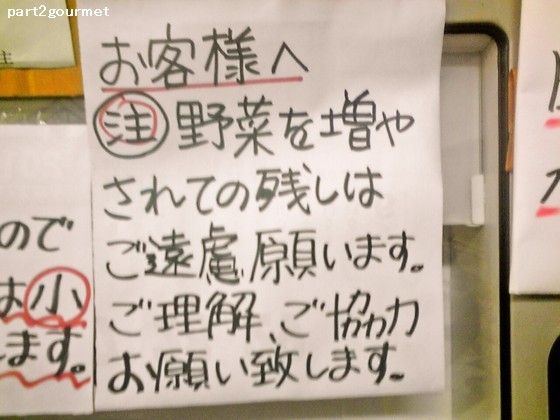 part2gourmet
お客様へ
注 野菜を増や
されての残しは
ご遠慮願います。
ご理解、ご協力
お願い致します。
ので
は小
します。